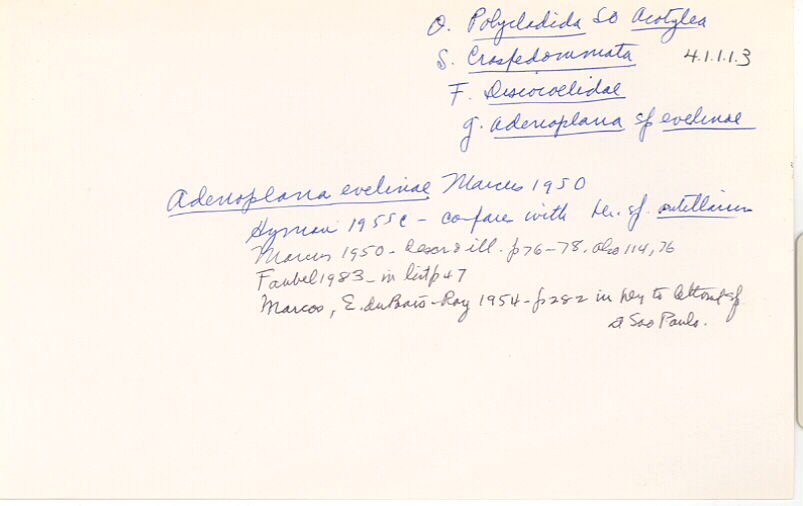 O. Polycladida SO Acotylea
S. Craspedommata 4.1.1.1.3
F. Discocoelidae
g. Adenoplana sp evelinae
Adenoplana evelinae Marcus 1950
Hyman 1955c - compares with her. sp.
Marcus 1950 - Descr & ill. p76-78. also 114, 76
Faubel 1983 - in list p47
Marcos, E. du Bois-Rey 1954 - p282 in key to littoral sp
Sao Paulo.